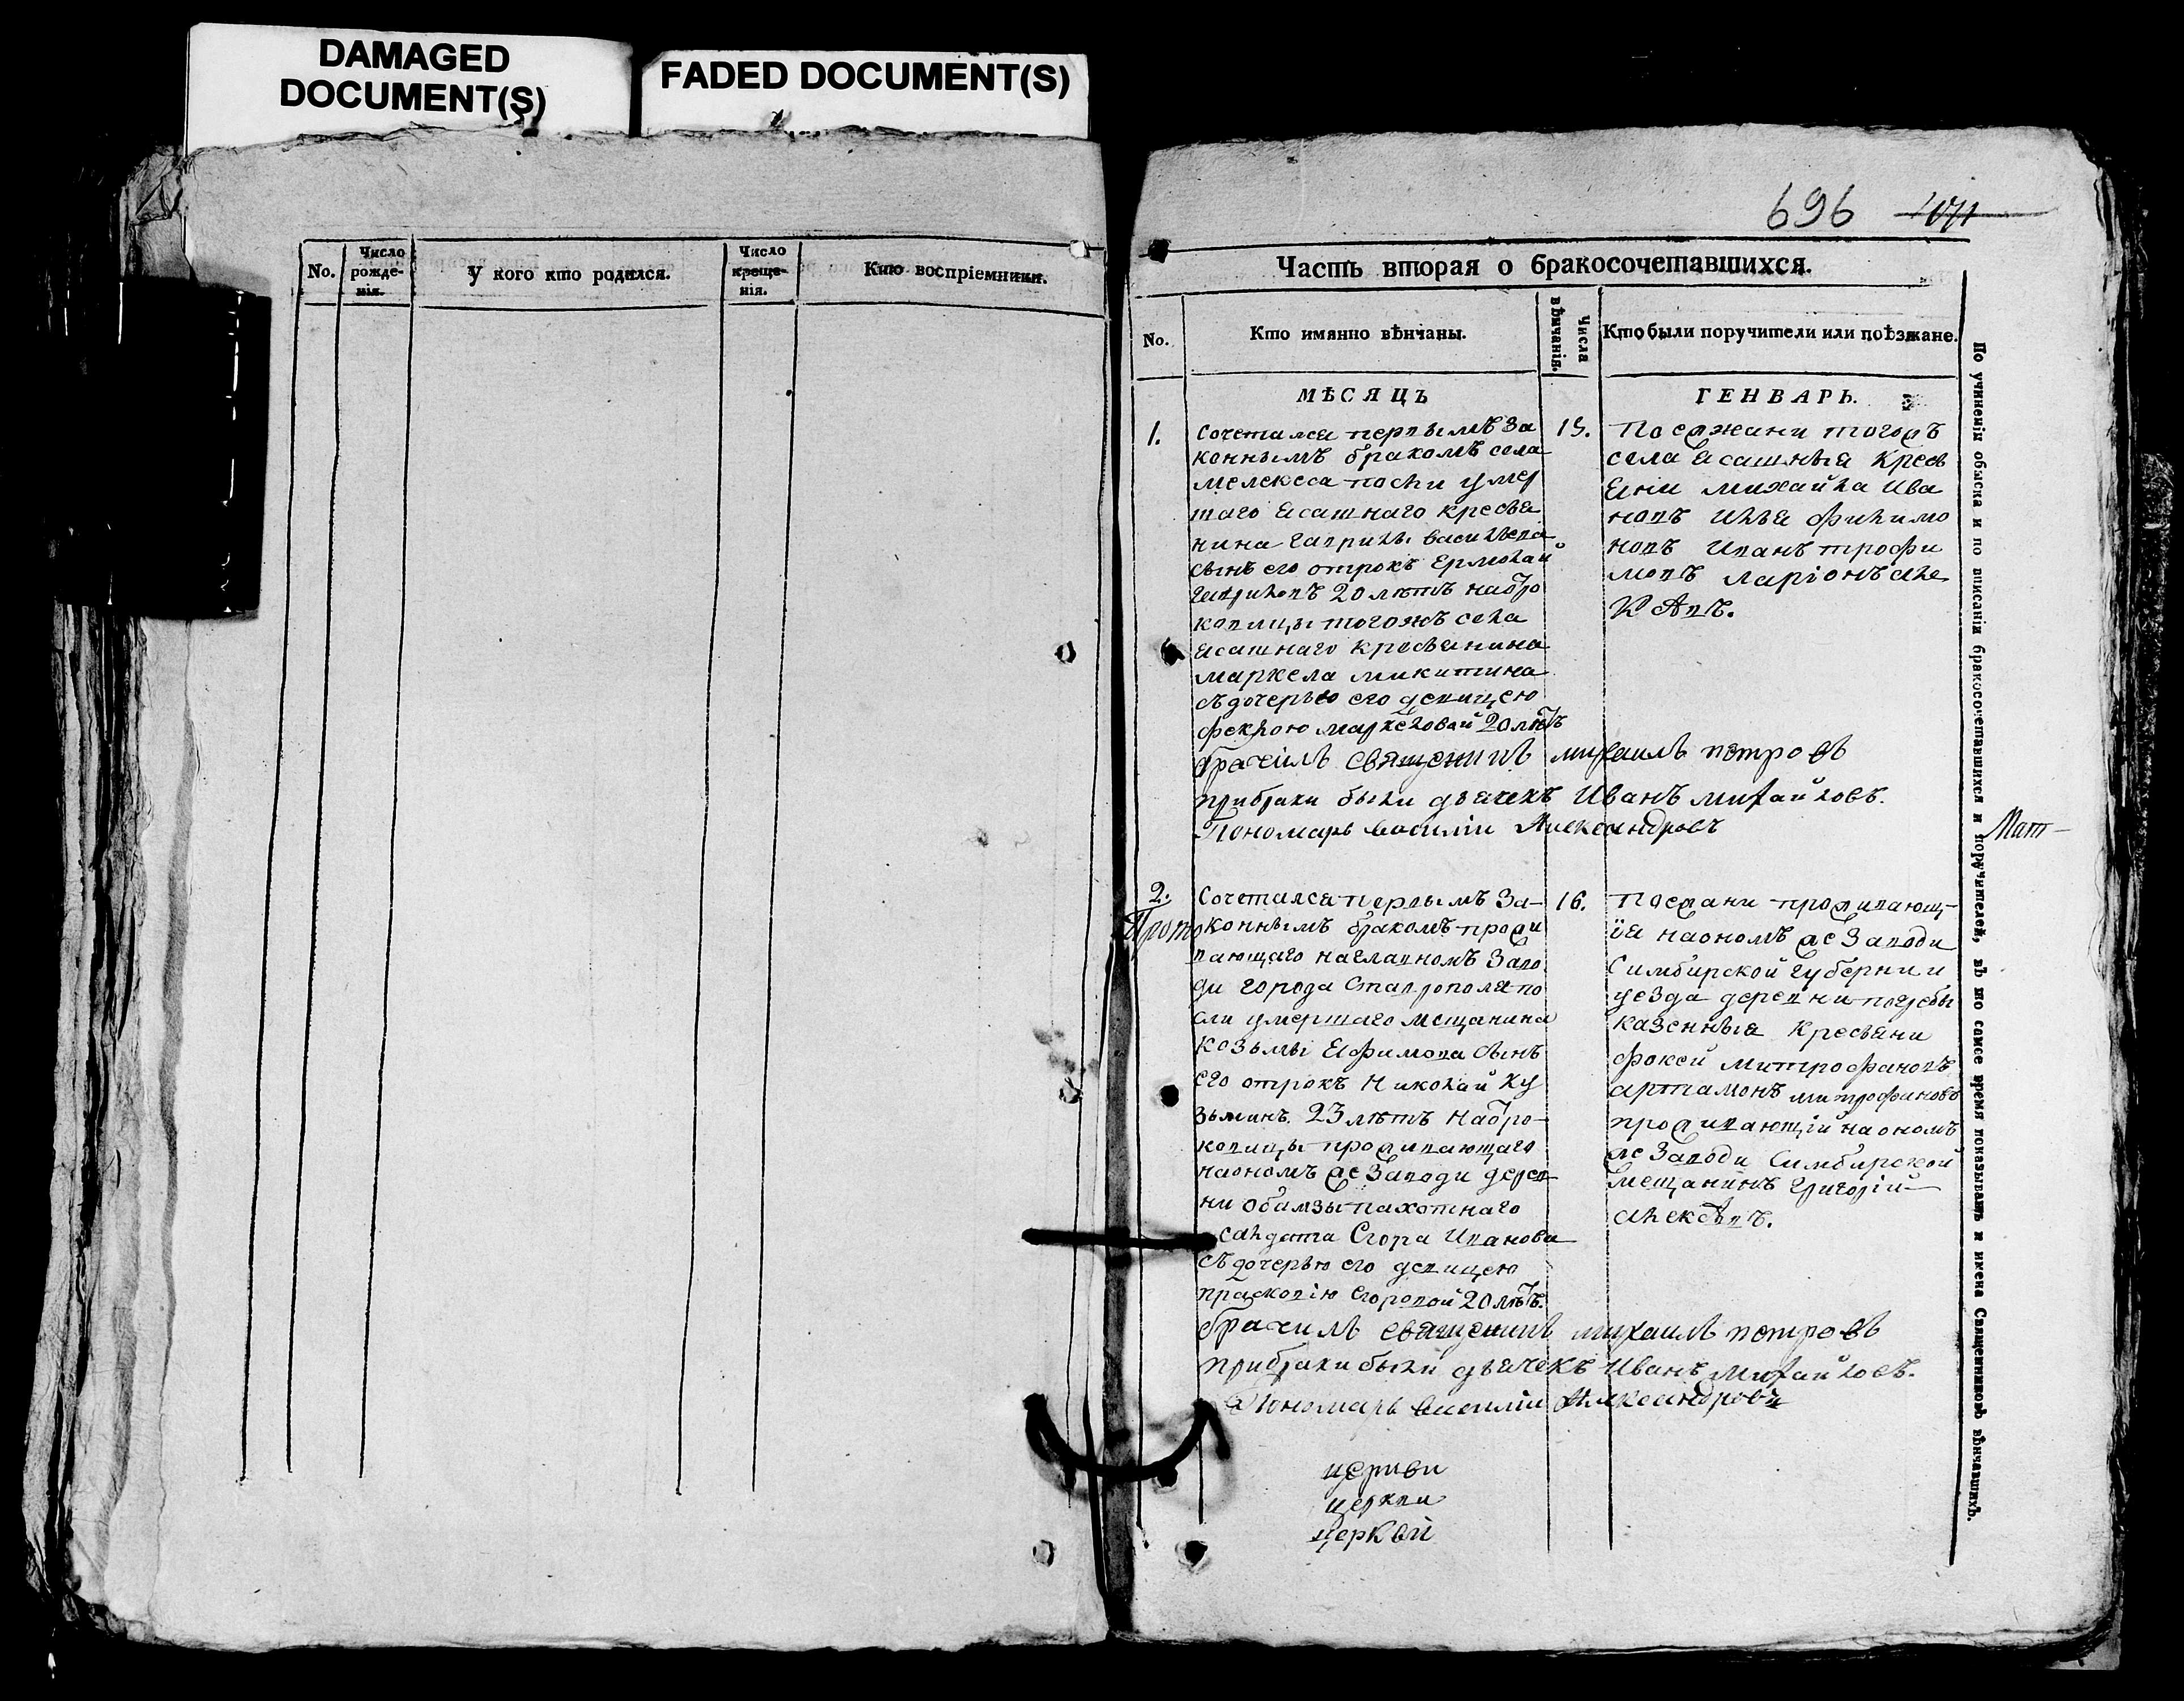 DAMAGED
DOCUMENT(S)
FADED DOCUMENT(S)
No.
Число
рожде-
нія.
У кого кто родился.
Число
креще-
нія.
Кто воспріемники.
696
Часть вторая о бракосочетавшихся.
No.
Кто имянно вѣнчаны.
Числа
вѣнчанія.
Кто были поручители или поѣзжане.
МѢСЯЦЪ
ГЕНВАРЬ.
1.
Сочетался первымъ за
коннымъ бракомъ села
мелекеса посли умер
шаго ясашнаго кресья
нина гаврилы васильева
сынъ его отрокъ Ермолай
гавриловъ 20 лѣтъ набро
ковицы тогожъ села
ясашнаго кресьянина
маркела микитина
съ дочерью его девицею
феклою маркеловой 20 лѣтъ
15.
Поезжани тогожъ
села ясашныя кресь
яни михайла ива
новъ илья филимо
новъ иванъ трофи
мовъ ларіонъ але
кѣевъ.
брачилъ священникъ михаилъ петровъ
при браки были дьячекъ Иванъ михайловъ.
Пономарь василіи Александровъ
Мат-
2.
Прото
Сочетался первымъ за-
коннымъ бракомъ прожи
вающаго на главномъ заво
ди города ставрополя по
сли умершаго мещанина
козьмы Ефимова сынъ
его отрокъ николай ку
зьминъ. 23 лѣтъ набро-
ковицы проживающаго
на ономъ же заводи дерев
ни пахотнаго
салдата Егора иванова
съ дочерью его девицею
прасковію егоровой 20 лѣтъ.
16.
Поезжани проживающ-
ія на ономъ же заводи
Симбирской губернии
уезда деревни погребы
казенныя кресьяни
фокей митрофановъ
артамонъ митрофановъ
проживающій на ономъ
же заводи Симбирской
мещанинъ григорій
алексѣевъ.
брачилъ священникъ михаилъ петровъ
при браки были дьячекъ Иванъ михайловъ.
Пономарь василіи Александровъ
церкви
церкви
церквй
По учиненіи обыска и по вписаніи бракосочетавшихся и поручителей, въ то самое время показывать и имена Священниковъ вѣнчавшихъ.